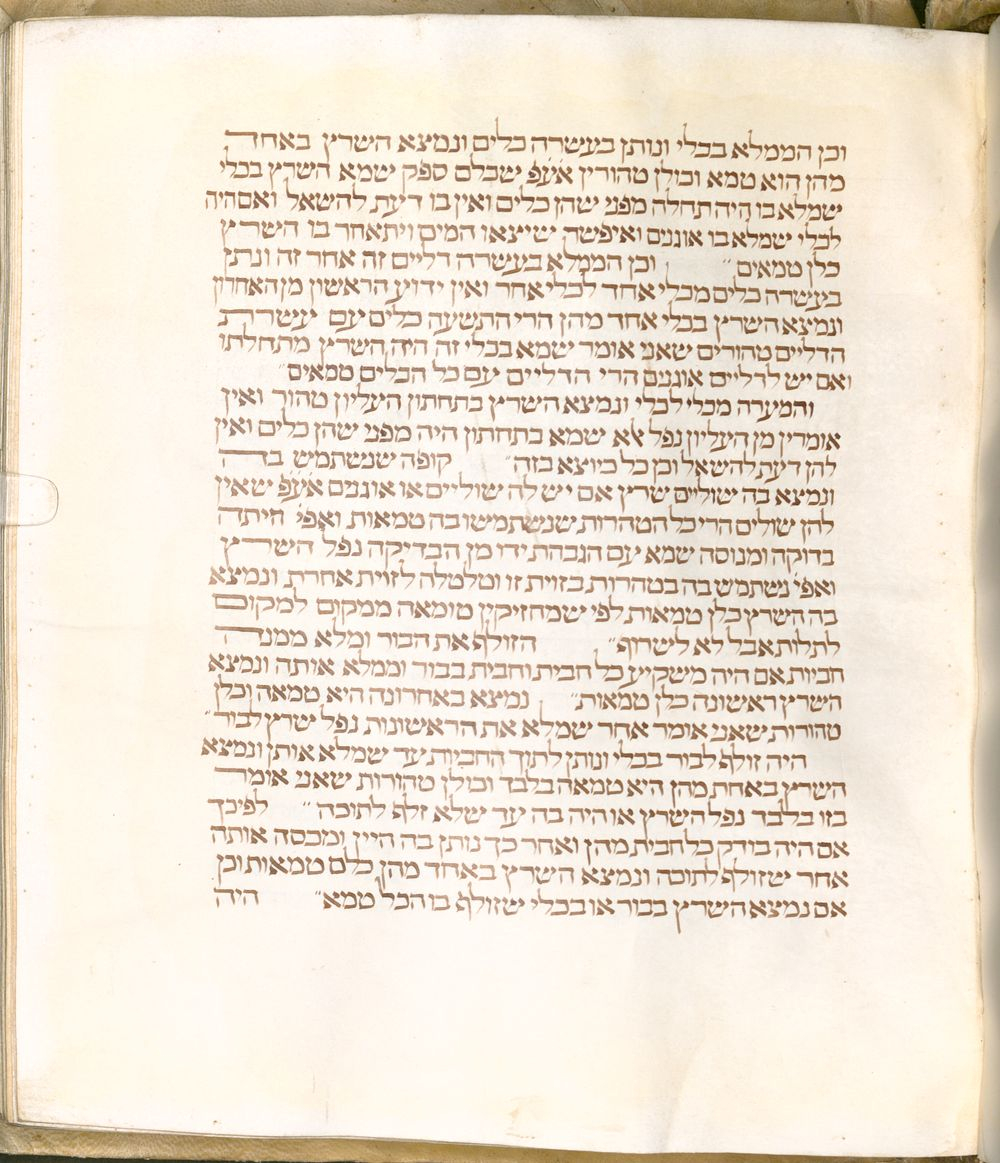 וכן הממלא בכלי ונותן בעשרה כלים ונמצא השרץ באחד
מהן הוא טמא וכולן טהורין אע״פ שכלם ספק שמא השרץ בכלי
שמלא בו היה תחלה מפני שהן כלים ואין בו דעת להשאל ואם היה
לכלי שמלא בו אוגנים ואיפשר שיצאו המים ויתאחר בו השרץ
כלן טמאים״ וכן הממלא בעשרה דליים זה אחר זה ונתן
בעשרה כלים מכלי אחד לכלי אחר ואין ידוע הראשון מן האחרון
ונמצא השרץ בכלי אחד מהן הרי התשעה כלים עם עשרת
הדליים טהורים שאני אומר שמא בכלי זה היה השרץ מתחלתו
ואם יש לדליים אוגנים הרי הדליים עם כל הכלים טמאים״
והמערה מכלי לכלי ונמצא השרץ בתחתון העליון טהור ואין
אומרין מן העליון נפל אלא שמא בתחתון היה מפני שהן כלים ואין
להן דעת להשאל וכן כל כיוצא בזה״ קופה שנשתמש בה
ונמצא בה שוליים שרץ אם יש לה שוליים או אוגנים אע״פ שאין
להן שולים הרי כל הטהרות שנשתמשו בה טמאות ואפי׳ היתה
בדוקה ומנוסה שמא עם הגבהת ידו מן הבדיקה נפל השרץ
ואפי׳ נשתמש בה בטהרות בזוית זו וטלטלה לזוית אחרת ונמצא
בה השרץ כלן טמאות לפי שמחזיקין טומאה ממקום למקום
לתלות אבל לא לשרוף״ הזולף את הבור ומלא ממנה
חביות אם היה משקיע כל חבית וחבית בבור וממלא אותה ונמצא
השרץ ראשונה כלן טמאות״ נמצא באחרונה היא טמאה וכלן
טהורות שאני אומר אחר שמלא את הראשונות נפל שרץ לבור״
היה זולף לבור בכלי ונותן לתוך החביות עד שמלא אותן ונמצא
השרץ באחת מהן היא טמאה בלבד וכולן טהורות שאני אומר
בזו בלבד נפל השרץ או היה בה עד שלא זלף לתוכה״ לפיכך
אם היה בודק כל חבית מהן ואחר כך נותן בה היין ומכסה אותה
אחר שזולף לתוכה ונמצא השרץ באחד מהן כלם טמאות וכן
אם נמצא השרץ בבור או בכלי שזולף בו הכל טמא״ היה